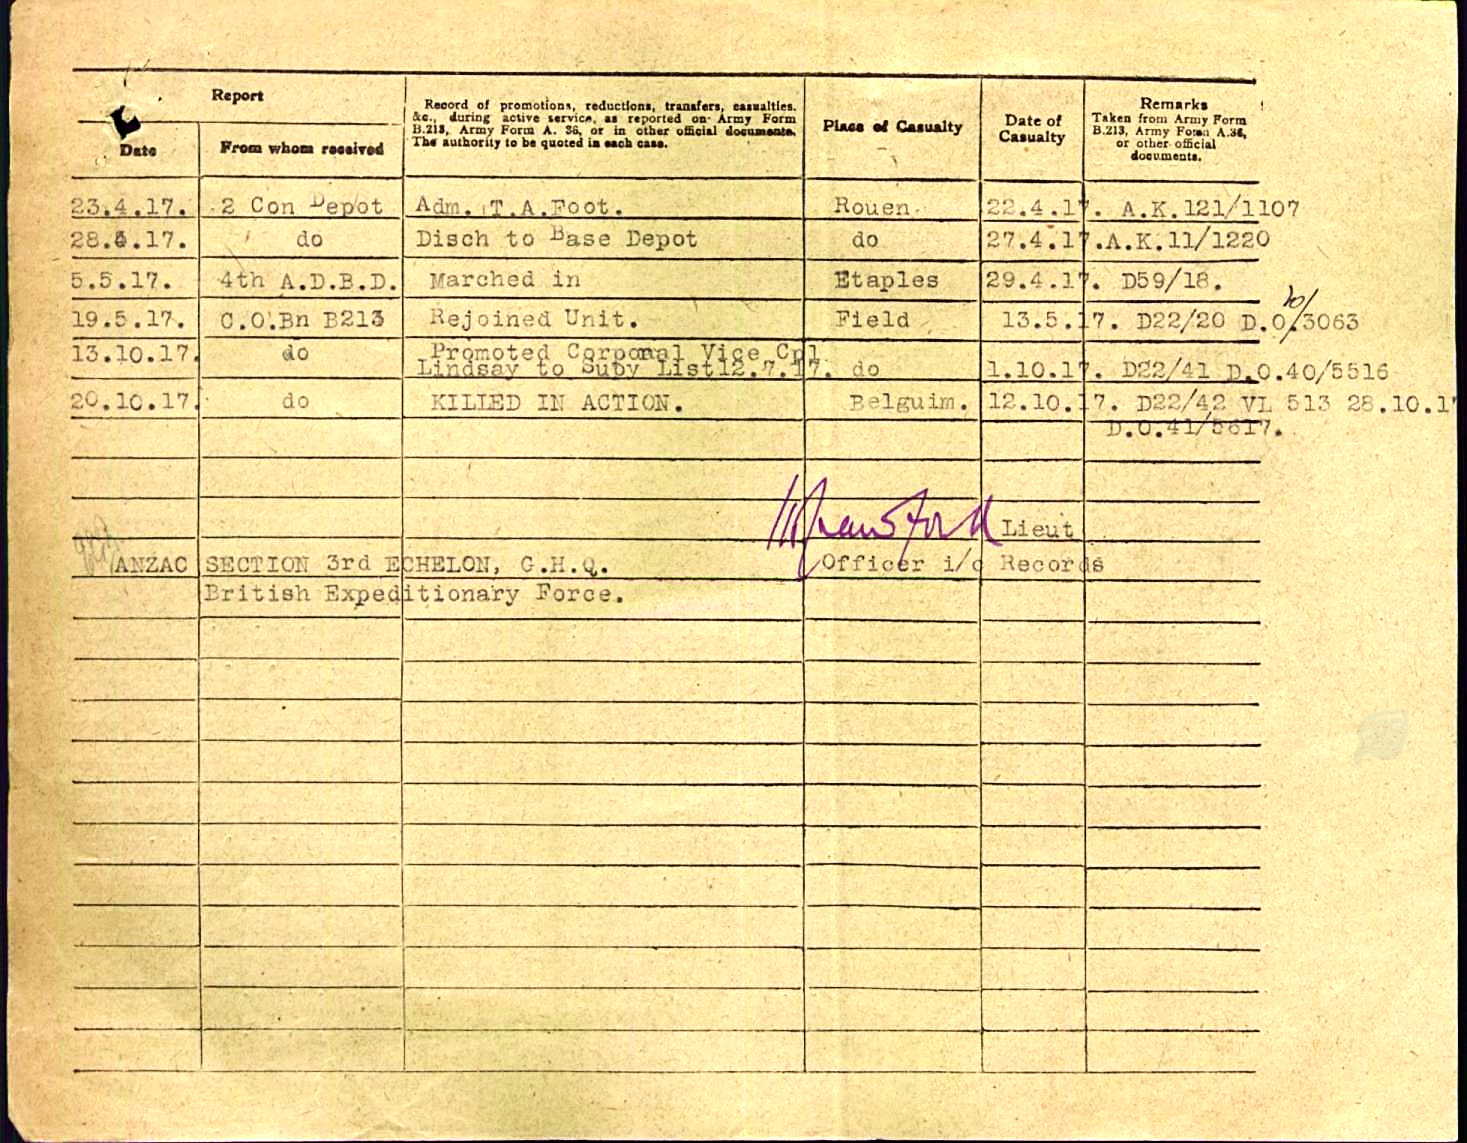 Report
Date
From whom received
Record of promotions, reductions, transfers, casualties,
&c., during active service, as reported on Army Form
B.213, Army Form A. 36, or in other official documents.
The authority to be quoted in each case.
Place of Casualty
Date of
Casualty
Remarks
Taken from Army Form
B.213, Army Form A.36,
or other official
documents.
23.4.17. 2 Con Depot Adm. T.A.Foot. Rouen. 22.4.17. A.K.121/1107
28.4.17. do Disch to Base Depot do 27.4.17. A.K.11/1220
5.5.17. 4th A.D.B.D. Marched in Etaples 29.4.17. D59/18.
19.5.17. C.O.Bn B213 Rejoined Unit. Field 13.5.17. D22/20 D.O/3063
13.10.17. do Promoted Corporal Vice Cpl
Lindsay to Suby List12.7.17. do 1.10.17. D22/41 D.O.40/5516
20.10.17. do KILLED IN ACTION. Belguim. 12.10.17. D22/42 VL 513 28.10.1
D.O.41/5617.
Crawford Lieut
ANZAC SECTION 3rd ECHELON, G.H.Q. Officer i/c Records
British Expeditionary Force.